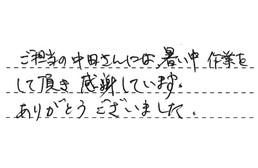 ご担当の中田さんには、暑い中 作業を
して頂き 感謝しています。
ありがとうございました。